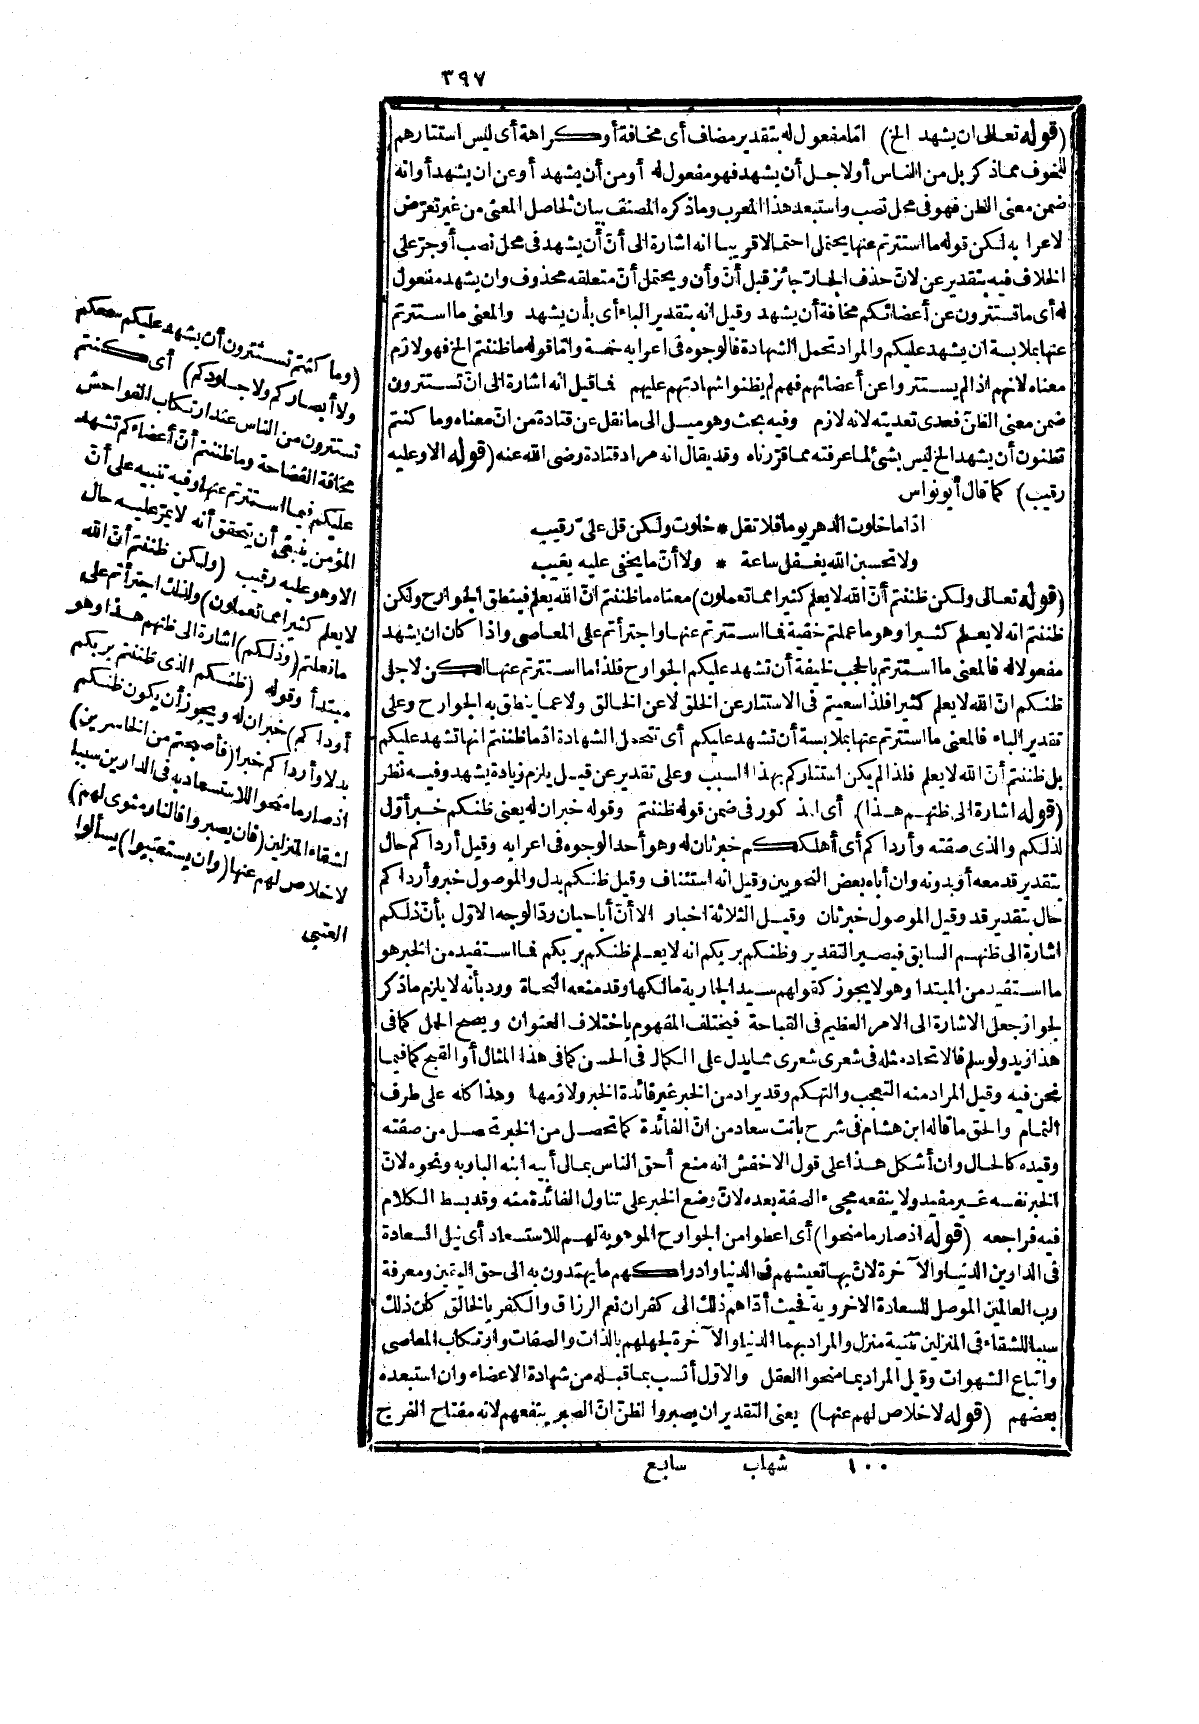 ٣٩٧
(قوله تعالى ان يشهد الخ) امّا مفعول له بتقدير مضاف أى مخافة أو كراهة أى ليس استتارهم
للخوف مماذكر بل من الناس أولاجل أن يشهد فهو مفعول له أو من أن يشهد أو عن ان يشهد أوانه
ضمن معنى الظن فهو فى محل نصب واستبعد هذا المعرب وماذكره المصنف بيان لحاصل المعنى من غير تعرّض
لاعرابه لكن قوله ما استترتم عنها يحتمل احتمالا قريبا انه اشارة الى أنّ أن يشهد فى محل نصب أو جرّ على
الخلاف فيه بتقدير عن لانّ حذف الجار جائز قبل أنّ وأن ويحتمل أنّ متعلقه محذوف وان يشهد مفعول
له أى ما تستترون عن أعضائكم مخافة أن يشهد وقيل انه بتقدير الباء أى بأن يشهد والمعنى ما استترتم
عنها بملابسة ان يشهد عليكم والمراد تحمل الشهادة فالوجوه فى اعرابه خمسة وامّا قوله ما ظننتم الخ فهو لازم
معناه لانهم اذ الم يستتروا عن أعضائهم فهم لم يظنوا شهادتهم عليهم فاقيل انه اشارة الى انّ تستترون
ضمن معنى الظنّ فعدى تعديته لانه لازم وفيه بحث وهو ميل الى ما نقل عن قتادة من انّ معناه وما كنتم
تظنون أن يشهد الخ ليس بشئ لما عرفته مما قرّرناه وقد يقال انه مراد قتادة رضى الله عنه (قوله الا وعليه
رقيب) كما قال أبو نواس
اذا ما خلوت الدهر يوما فلا تقل * خلوت ولكن قل علىّ رقيب
ولا تحسبن الله يغفل ساعة * ولا أنّ ما يخفى عليه يغيب
(قوله تعالى ولكن ظننتم أنّ الله لا يعلم كثيرا مما تعملون) معناه ما ظننتم انّ الله يعلم فينطق الجوارح ولكن
ظننتم انه لا يعلم كثيرا وهو ما عملتم خفية فما استترتم عنها واجترأتم على المعاصى واذا كان ان يشهد
مفعولا له فالمعنى ما استترتم بالحجب خليفة أن تشهد عليكم الجوارح فلذا ما استترتم عنها لكن لاجل
ظنكم انّ الله لا يعلم كثيرا فلذا سعيتم فى الاستتار عن الخلق لا عن الخالق ولا عما ينطق به الجوارح وعلى
تقدير الباء فالمعنى ما استترتم عنها بملابسة أن تشهد عليكم أى تتحمل الشهادة اذ ما ظننتم انها تشهد عليكم
بل ظننتم أنّ الله لا يعلم فلذا لم يكن استتاركم بهذا السبب وعلى تقدير عن قيل يلزم زيادة يشهد وفيه نظر
(قوله اشارة الى ظنهم هذا) أى المذكور فى ضمن قوله ظننتم وقوله خبران له يعنى ظنكم خبر أوّل
لذلكم والذى صفته وأرداكم أى أهلككم خبر ثان له وهو أحد الوجوه فى اعرابه وقيل أرداكم حال
بتقدير قد معه أو بدونه وان أباه بعض النحويين وقيل انه استئناف وقيل ظنكم بدل والموصول خبر وأرداكم
حال بتقدير قد وقيل الموصول خبر ثان وقيل الثلاثة اخبار الا أنّ أبا حيان ردّ الوجه الاوّل بأنّ ذلكم
اشارة الى ظنهم السابق فيصير التقدير وظنكم بربكم انه لا يعلم ظنكم بربكم فما استفيد من الخبر هو
ما استفيد من المبتدا وهو لا يجوز كقولهم سيد الجارية مالكها وقد منعه النحاة وردّ بأنه لا يلزم ما ذكر
لجواز جعل الاشارة الى الامر العظيم فى القباحة فيختلف المفهوم باختلاف العنوان ويصح الحمل كما فى
هذا زيد ولو سلم فالاتحاد مثله فى شعرى شعرى مما يدل على الكمال فى الحسن كما فى هذا المثال أو القبح كما فيما
نحن فيه وقيل المراد منه التعجب والتهكم وقد يراد من الخبر غير فائدة الخبر ولازمها وهذا كله على طرف
الثمام والحق ما قاله ابن هشام فى شرح بانت سعاد من انّ الفائدة كما تحصل من الخبر تحصل من صفته
وقيده كالحال وان أشكل هذا على قول الاخفش انه منع أحق الناس بمال أبيه ابنه البار به ونحوه لانّ
الخبر نفسه غير مفيد ولا ينفعه مجىء الصفة بعده لانّ وضع الخبر على تناول الفائدة منه وقد بسط الكلام
فيه فراجعه (قوله اذ صار ما منحوا) أى اعطوا من الجوارح الموهوبة لهم للاستسعاد أى نيل السعادة
فى الدارين الدنيا والآخرة لانّ بها تعيشهم فى الدنيا وادراكهم ما يهتدون به الى حق اليقين ومعرفة
رب العالمين الموصل للسعادة الاخروية فحيث أدّاهم ذلك الى كفران نعم الرزاق والكفر بالخالق كان ذلك
سببا للشقاء فى المنزلين تثنية منزل والمراد بهما الدنيا والآخرة لجهلهم بالذات والصفات وارتكاب المعاصى
واتباع الشهوات وقيل المراد بما منحوا العقل والاوّل أنسب بما قبله من شهادة الاعضاء وان استبعده
بعضهم (قوله لا خلاص لهم عنها) يعنى التقدير ان يصبروا لظنّ انّ الصبر ينفعهم لانه مفتاح الفرج
١٠٠ شهاب سابع
(وما كنتم تستترون أن يشهد عليكم سمعكم
ولا أبصاركم ولا جلودكم) أى كنتم
تستترون من الناس عند ارتكاب الفواحش
مخافة الفضاحة وما ظننتم أنّ أعضاءكم تشهد
عليكم فما استترتم عنها وفيه تنبيه على أنّ
المؤمن ينبغى أن يتحقق أنه لا يمرّ عليه حال
الا وهو عليه رقيب (ولكن ظننتم أنّ الله
لا يعلم كثيرا مما تعملون) ولذلك اجترأتم على
ما فعلتم (وذلكم) اشارة الى ظنهم هذا وهو
مبتدأ وقوله (ظنكم الذى ظننتم بربكم
أرداكم) خبران له ويجوز أن يكون ظنكم
بدلا وأرداكم خبرا (فأصبحتم من الخاسرين)
اذ صار ما منحوا للاستسعاد به فى الدارين سببا
لشقاء المنزلين (فان يصبروا فالنار مثوى لهم)
لا خلاص لهم عنها (وان يستعتبوا) يسألوا
العتبى